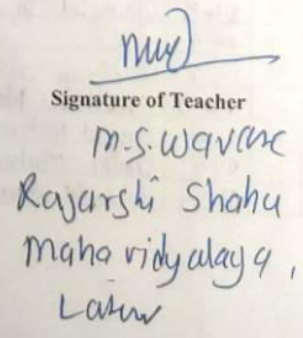 Signature of Teacher
M.S. Wavare
Rajarshi Shahu
Mahavidyalaya,
Latur